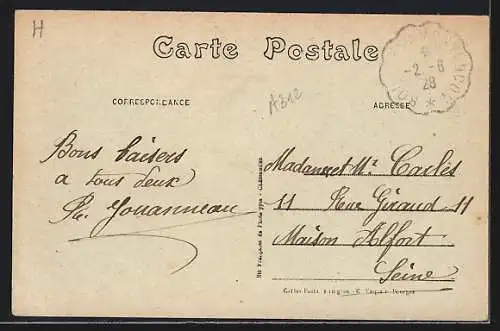 H
Carte Postale
-2 -6
28
CORRESPONDANCE
A312
ADRESSE
Bons baisers
a tous deux
Jouanneau
Madame et Mr Carlès
11 Rue Giraud 11
Maison Alfort
Seine